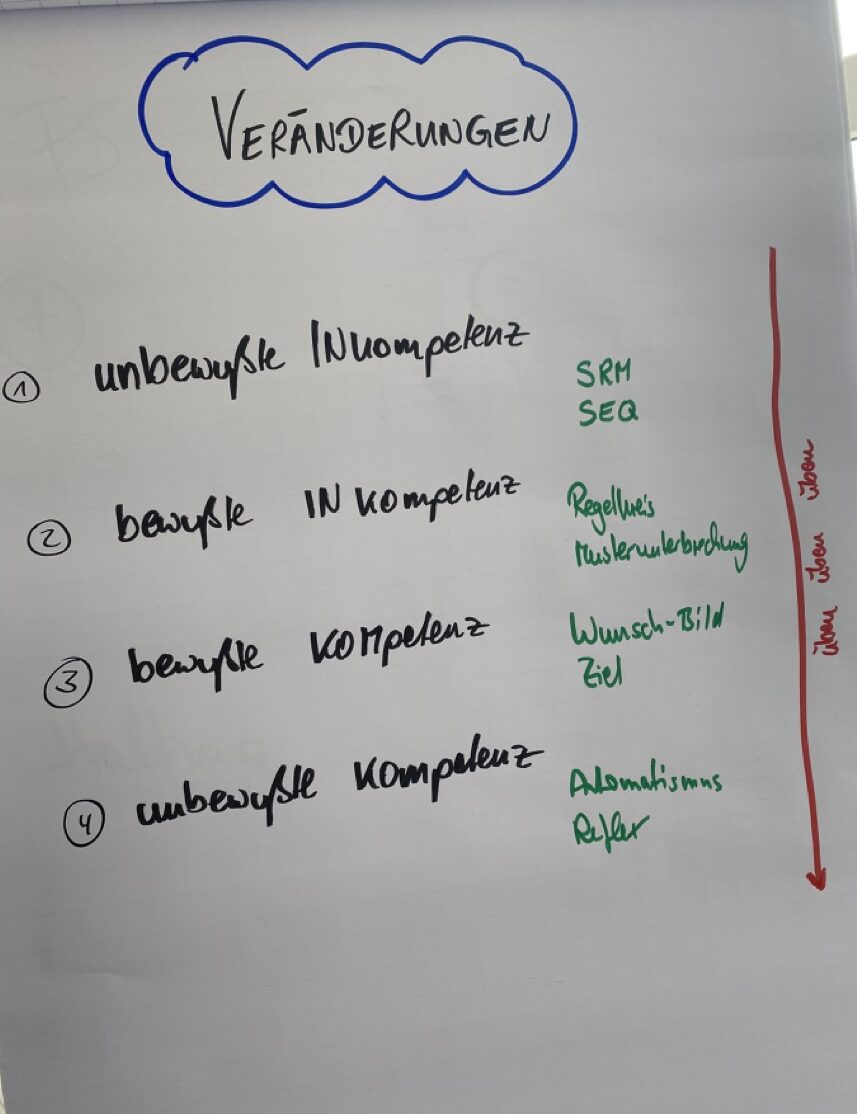 VERÄNDERUNGEN
① unbewußte INkompetenz
SRM
SEQ
② bewußte INkompetenz
Regelkreis
Musterunterbrechung
③ bewußte KOMpetenz
Wunsch-Bild
Ziel
④ unbewußte Kompetenz
Automatismus
Reflex
üben üben üben